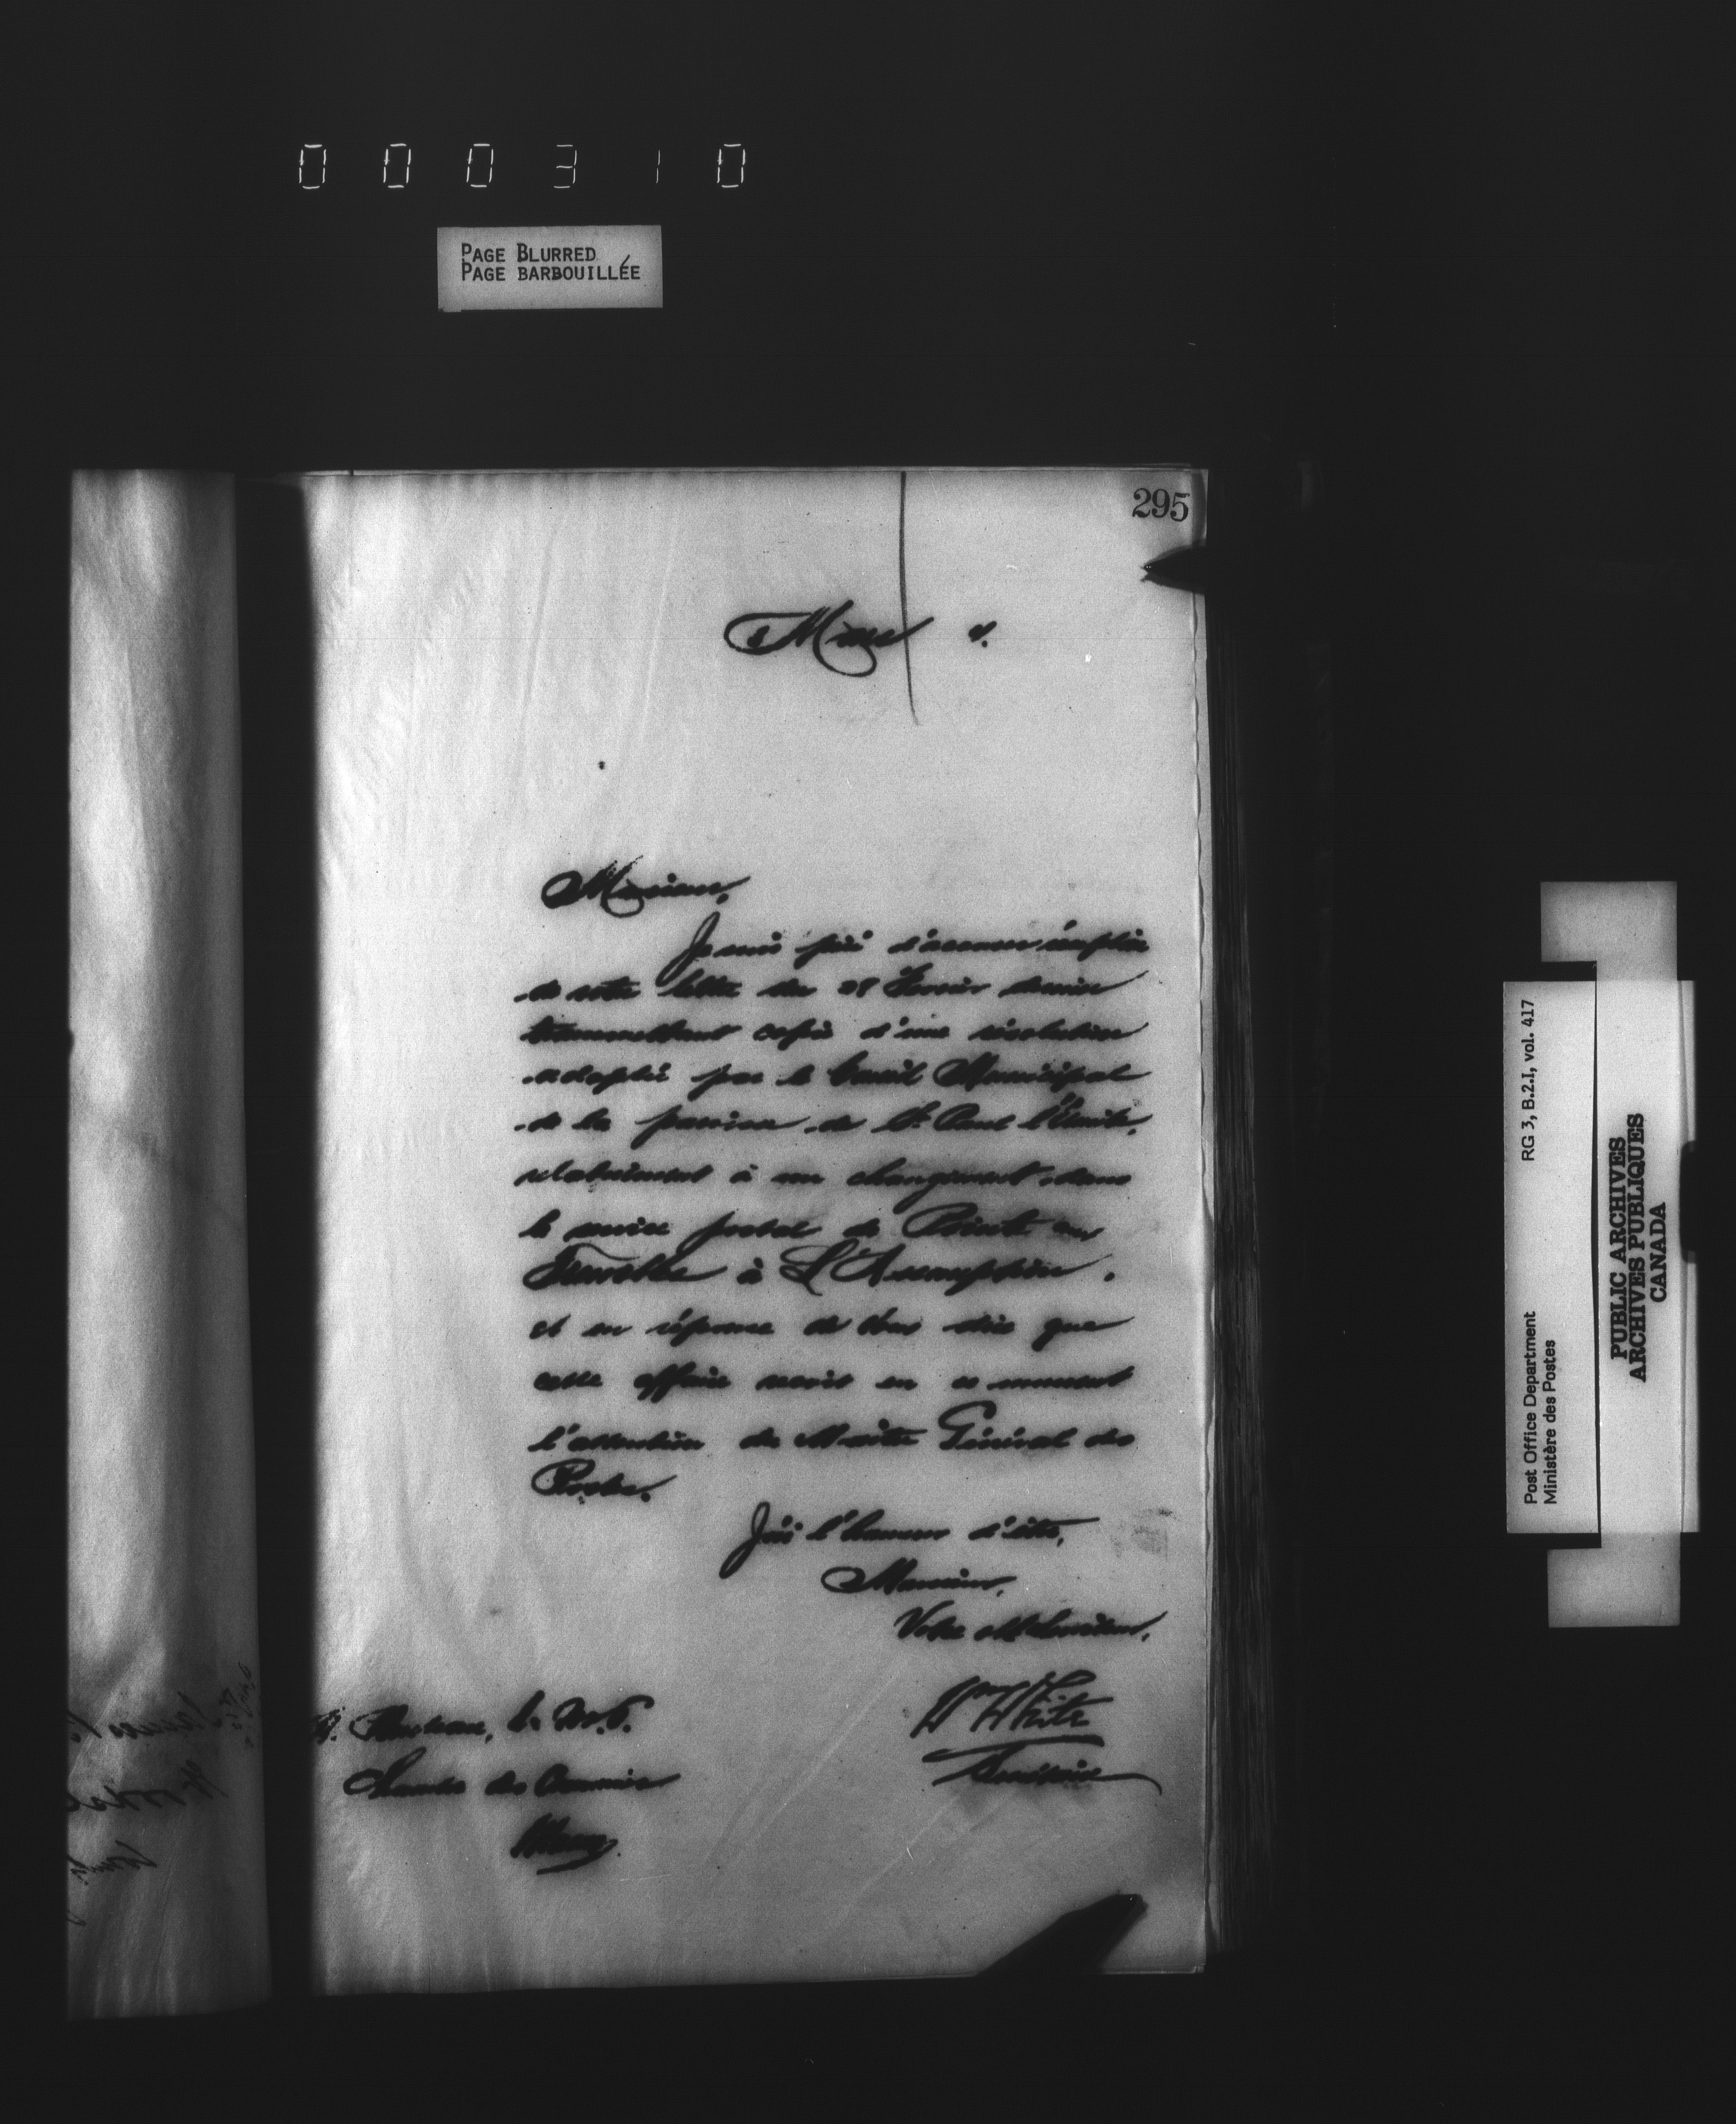 000310
PAGE BLURRED
PAGE BARBOUILLÉE
295
Mars 8.
Monsieur,
Je suis prié d'accuser réception
de votre lettre du 28 Février dernier
transmettant copie d'une résolution
adoptée par le Conseil Municipal
de la paroisse de St. Paul l'Ermite,
relativement à un changement dans
le service postal de Pointe aux
Trembles à L'Assomption,
et en réponse de vous dire que
cette affaire reçoit en ce moment
l'attention du Maître Général des
Postes.
J'ai l'honneur d'être,
Monsieur,
Votre obt. Serviteur,
Wm White
Secrétaire
Chambre des Communes
RG 3, B.2.I, vol. 417
Post Office Department
Ministère des Postes
PUBLIC ARCHIVES
ARCHIVES PUBLIQUES
CANADA